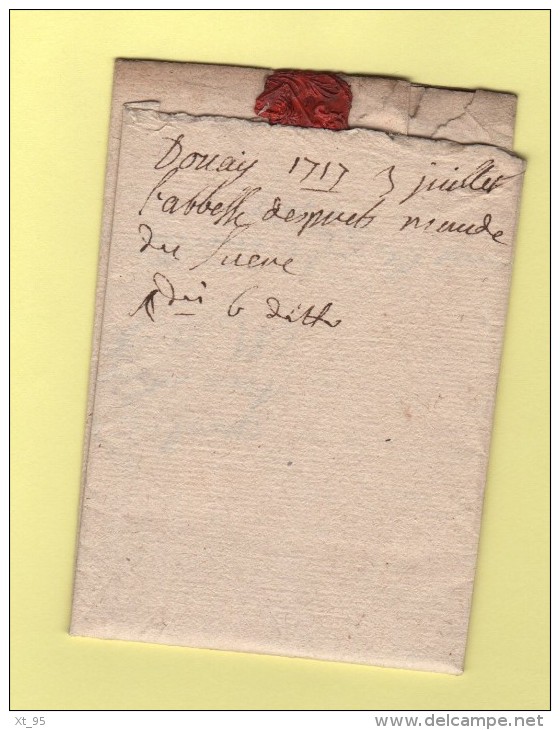 Douay 1717 3 juillet
l'abbesse desprets mande
du sucre
Rdu 6 ditto
Xt_95
www.delcampe.net